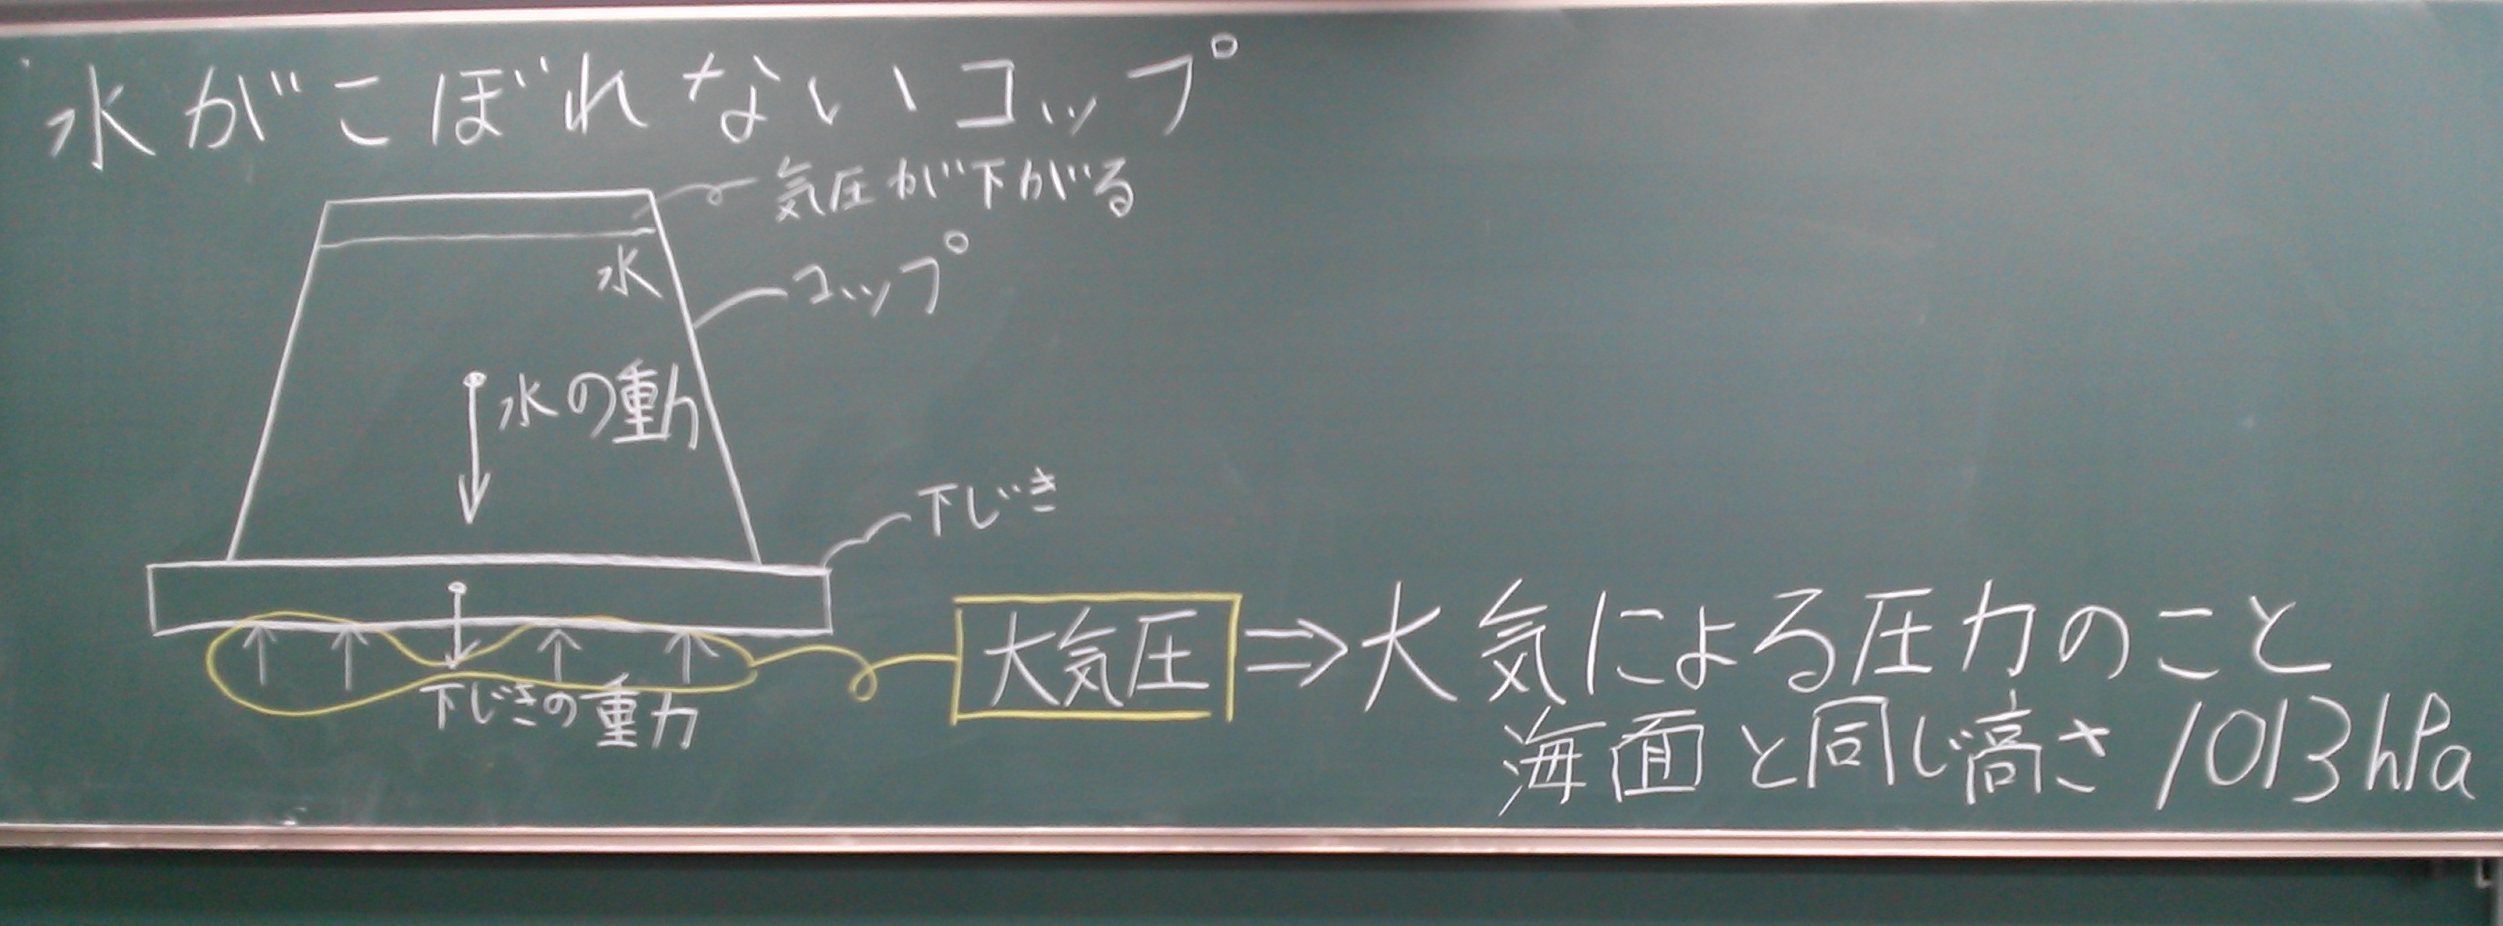 水がこぼれないコップ
気圧が下がる
水
コップ
水の重力
下じき
下じきの重力
大気圧⇒大気による圧力のこと
海面と同じ高さ 1013hPa